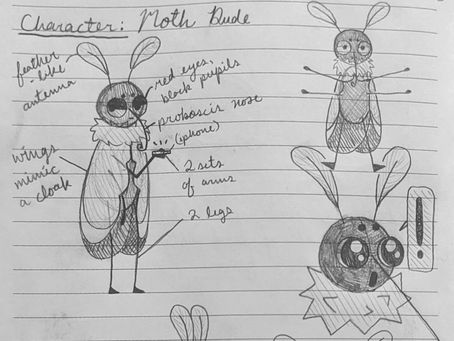 Character: Moth Dude
feather
-like
antenna
red eyes,
black pupils
proboscis nose
(iphone)
wings
mimic
a cloak
2 sets
of arms
2 legs
!